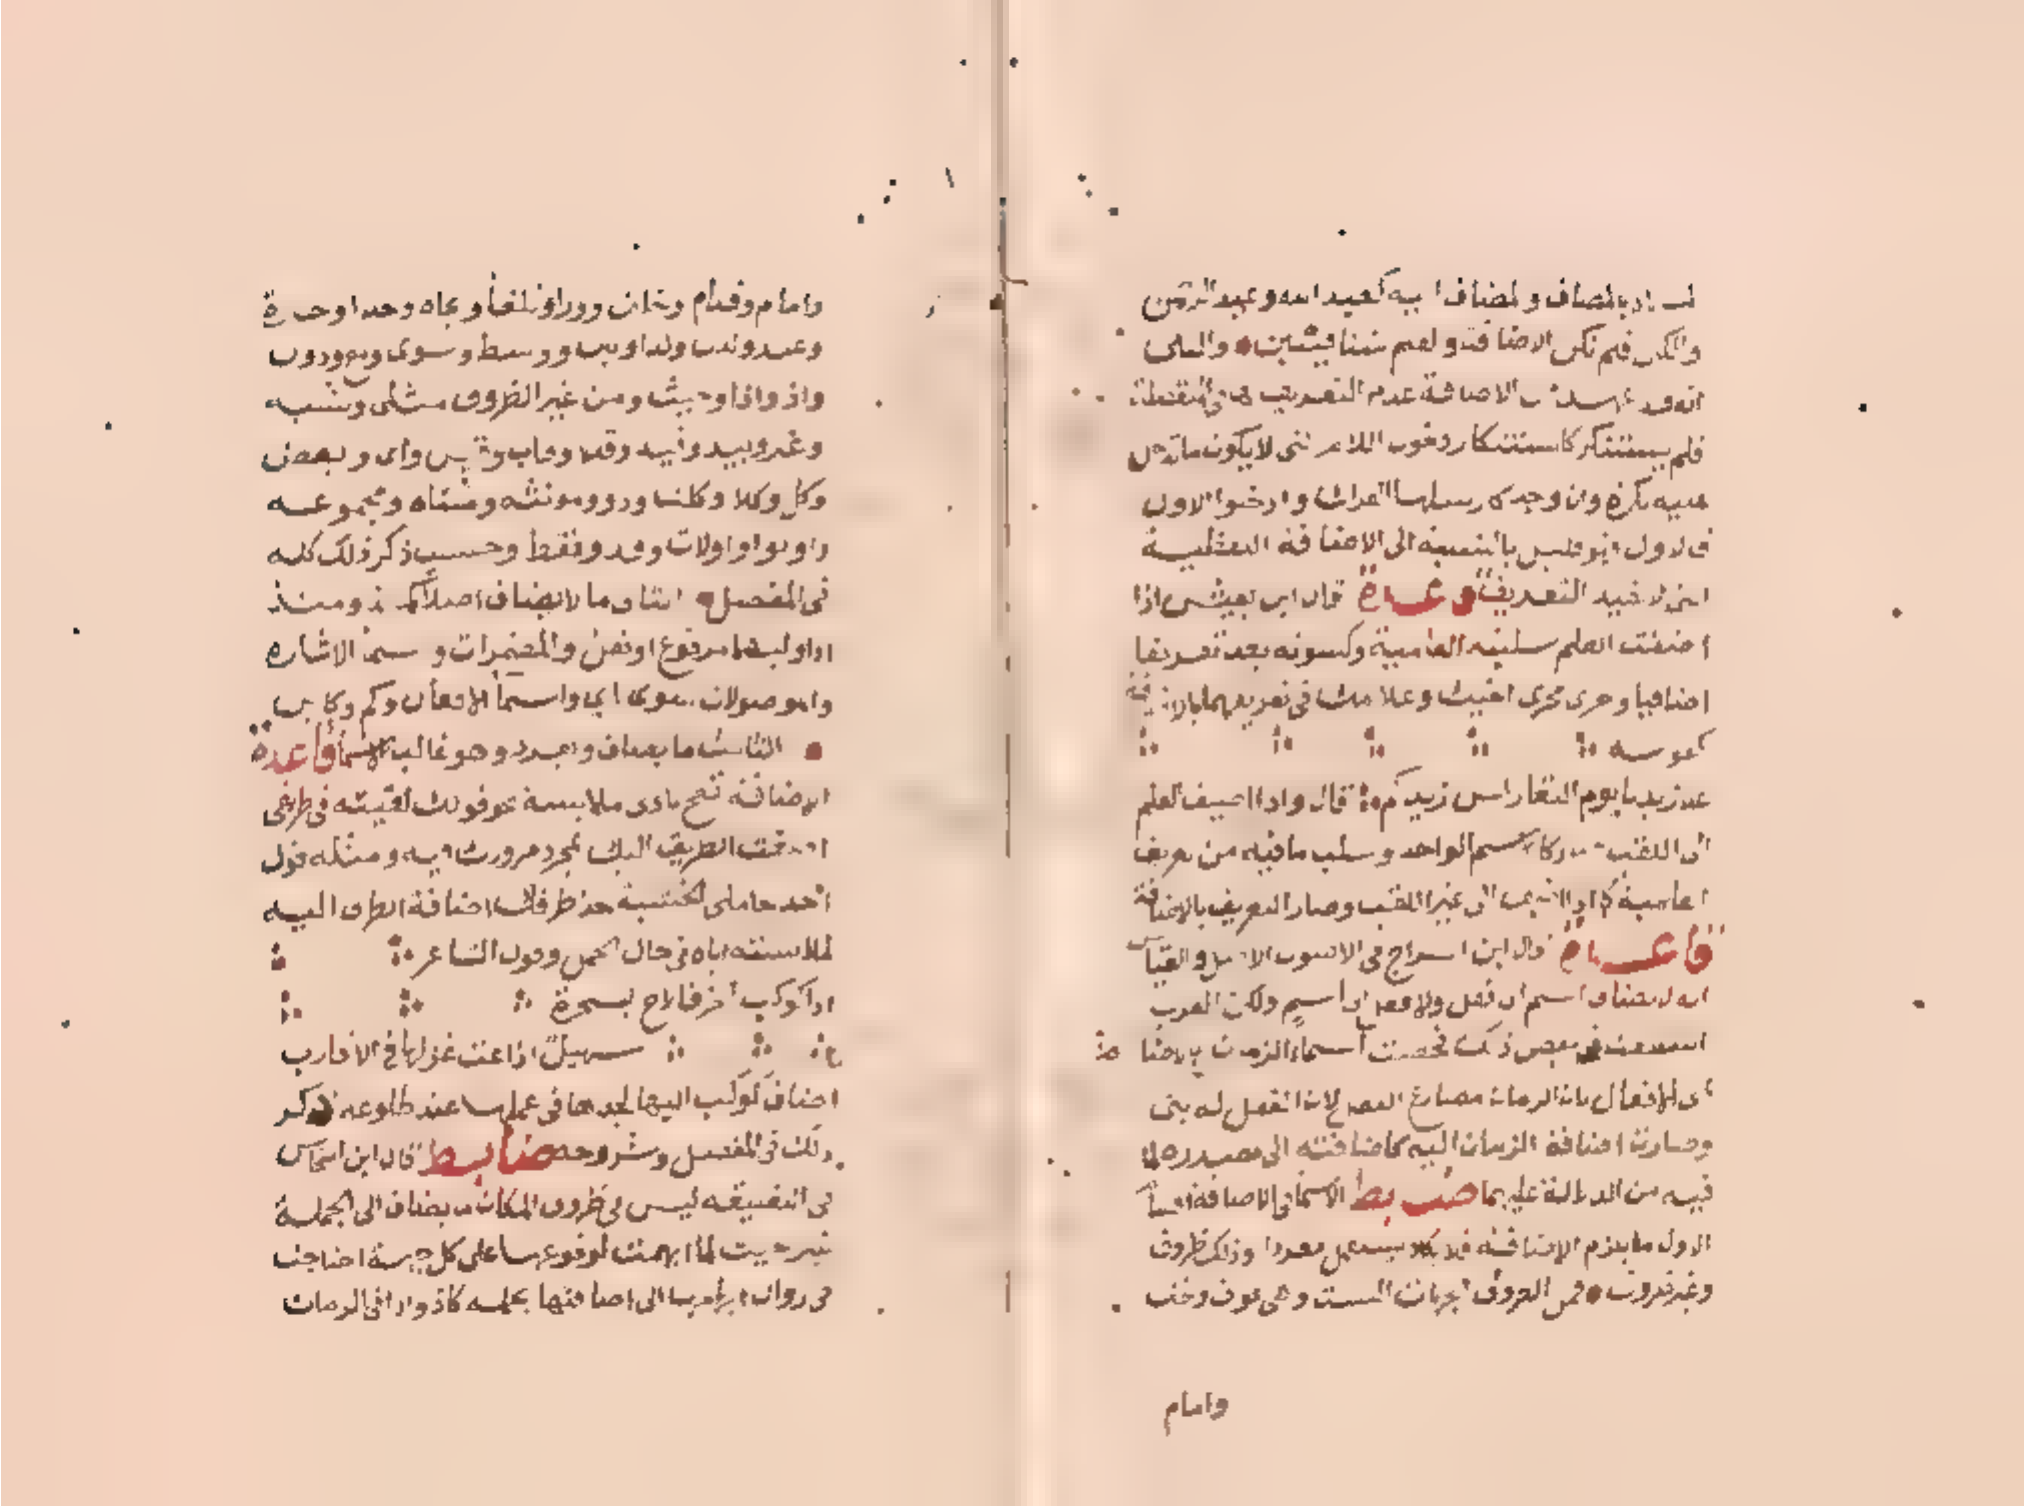 بالمضاف والمضاف اليه كعبد الله وعبد الرحمن
والكل فلم تكن الاضافة والعلم متنافيين والثانى
انه قد عهد الاضافة عدم التعريف
فلم يستنكر كاستنكار دخول اللام التى لا يكون ما تدخل
عليه نكرة وان وجد كارسلها العراك وادخلوا الاول
فالاول فهو قليل بالنسبة الى الاضافة اللفظية
التى لا تفيد التعريف قاعدة قال ابن يعيش اذا
اضفت العلم سلبته العلمية وكسوته بعد تعريفا
اضافيا وجرى مجرى اخيك وغلامك فى تعريفهما بالاضافة
كقوله
علا زيدنا يوم النقا راس زيدكم قال واذا اضيف العلم
الى اللقب صار كالاسم الواحد وسلب ما فيه من تعريف
العلمية كما اذا اضيف الى غير اللقب وصار التعريف بالاضافة
قاعدة قال ابن السراج فى الاصول الاصل والقياس
انه لا يضاف اسم الى فعل ولا فعل الى اسم ولكن العرب
اتسعت فى بعض ذلك فخصت اسماء الزمان بالاضافة
الى الافعال لان الزمان مضارع الفعل لان الفعل له بنى
وصارت اضافة الزمان اليه كاضافته الى مصدره لما
فيه من الدلالة عليهما ضابط الاسما فى الاضافة اقسام
الاول ما يلزم الاضافة فلا يكاد يستعمل مفردا وذلك ظروف
وغير ظروف فمن الظروف الجهات الست وهى فوق وتحت
وامام
وامام وقدام وخلف وورا وتلقا وتجاه وحذا وحذة
وعند ولدن ولدا وبين ووسط وسوى ومع ودون
واذ واذا وحيث ومن غير الظروف مثل وشبه
وغير وبيد وقيد وقدا وقاب وقيس واى وبعض
وكل وكلا وكلتا وذو ومونثه ومثناه ومجموعه
واولوا واولات وقد وقط وحسب ذكر ذلك كله
فى المفصل الثانى ما لا يضاف اصلا كمذ ومنذ
اذا وليهما مرفوع او فعل والمضمرات واسما الاشارة
والموصولات سوى اى واسما الافعال وكم وكاين
الثالث ما يضاف ويجرد وهو غالب الاسما قاعدة
الاضافة تصح بادنى ملابسة نحو قولك لقيته فى طريقى
اضفت الطريق اليك بمجرد مرورك فيه ومثله قول
احد حاملى الخشبة خذ طرفك اضافة الطرف اليه
لملابسته اياه فى حال الحمل وقول الشاعر
اذا كوكب الخرقا لاح بسحرة
سهيل اذاعت غزلها فى الاقارب
اضاف الكوكب اليها لجدها فى عملها عند طلوعه ذكر
ذلك فى المفصل وشروحه ضابط قال ابن النحاس
فى التعليقة ليس فى ظروف المكان ما يضاف الى الجملة
غير حيث لما ابهمت لوقوعها على كل جهة احتاجت
فى زوال ابهامها الى اضافتها بجملة كاذ واذا فى الزمان